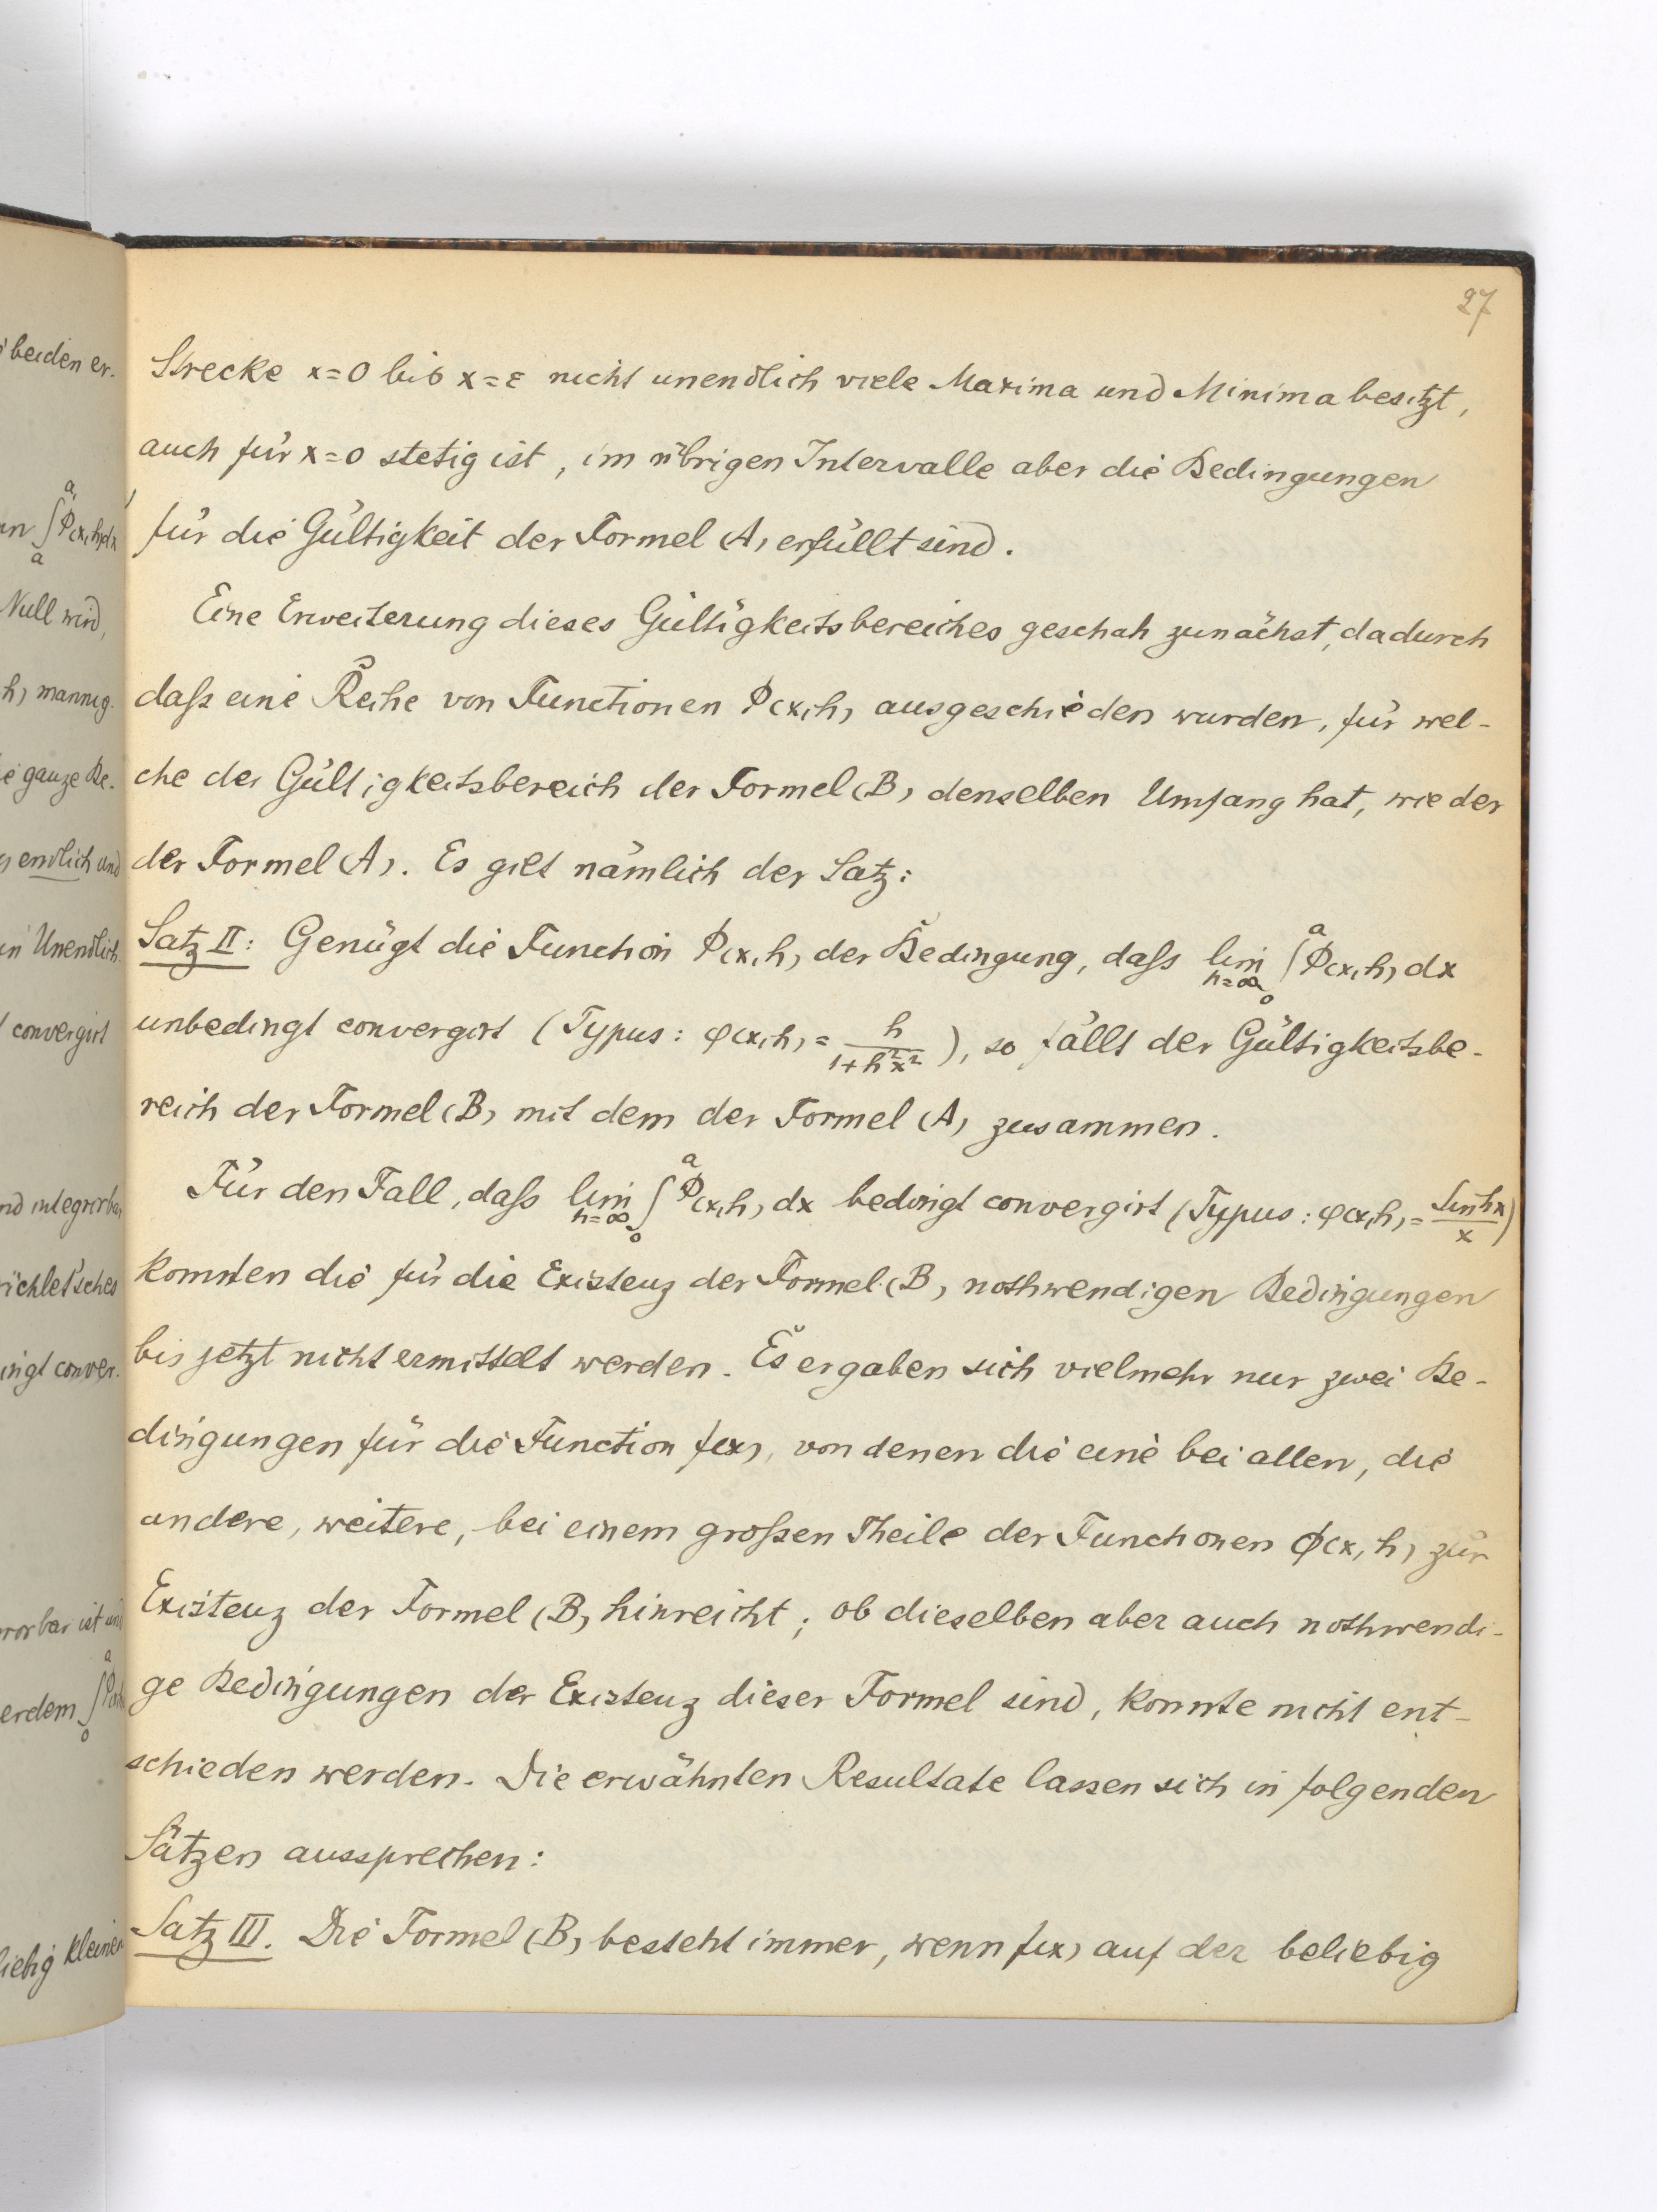 27
Strecke x=0 bis x=ε nicht unendlich viele Maxima und Minima besitzt,
auch für x=0 stetig ist, im übrigen Intervalle aber die Bedingungen
für die Gültigkeit der Formel (A) erfüllt sind.
Eine Erweiterung dieses Gültigkeitsbereiches geschah zunächst, dadurch
daß eine Reihe von Functionen Φ(x,h) ausgeschieden wurden, für wel-
che der Gültigkeitsbereich der Formel (B) denselben Umfang hat, wie der
der Formel (A). Es gilt nämlich der Satz:
Satz II: Genügt die Function Φ(x,h) der Bedingung, daß lim h=∞ ∫₀ᵃ Φ(x,h) dx
unbedingt convergirt (Typus: φ(x,h) = h/(1+h²x²)), so fällt der Gültigkeitsbe-
reich der Formel (B) mit dem der Formel (A) zusammen.
Für den Fall, daß lim h=∞ ∫₀ᵃ Φ(x,h) dx bedingt convergirt (Typus: φ(x,h) = Sin hx/x)
konnten die für die Existenz der Formel (B) nothwendigen Bedingungen
bis jetzt nicht ermittelt werden. Es ergaben sich vielmehr nur zwei Be-
dingungen für die Function f(x), von denen die eine bei allen, die
andere, weitere, bei einem großen Theile der Functionen Φ(x,h) zur
Existenz der Formel (B) hinreicht; ob dieselben aber auch nothwendi-
ge Bedingungen der Existenz dieser Formel sind, konnte nicht ent-
schieden werden. Die erwähnten Resultate lassen sich in folgenden
Sätzen aussprechen:
Satz III. Die Formel (B) besteht immer, wenn f(x) auf der beliebig
beiden er-
∫ Φ(x,h)dx
Null wird,
h) mannig-
ganze Be-
endlich und
in Unendlich
convergirt
integrirbar
conver-
ist und
erdem
kleinen